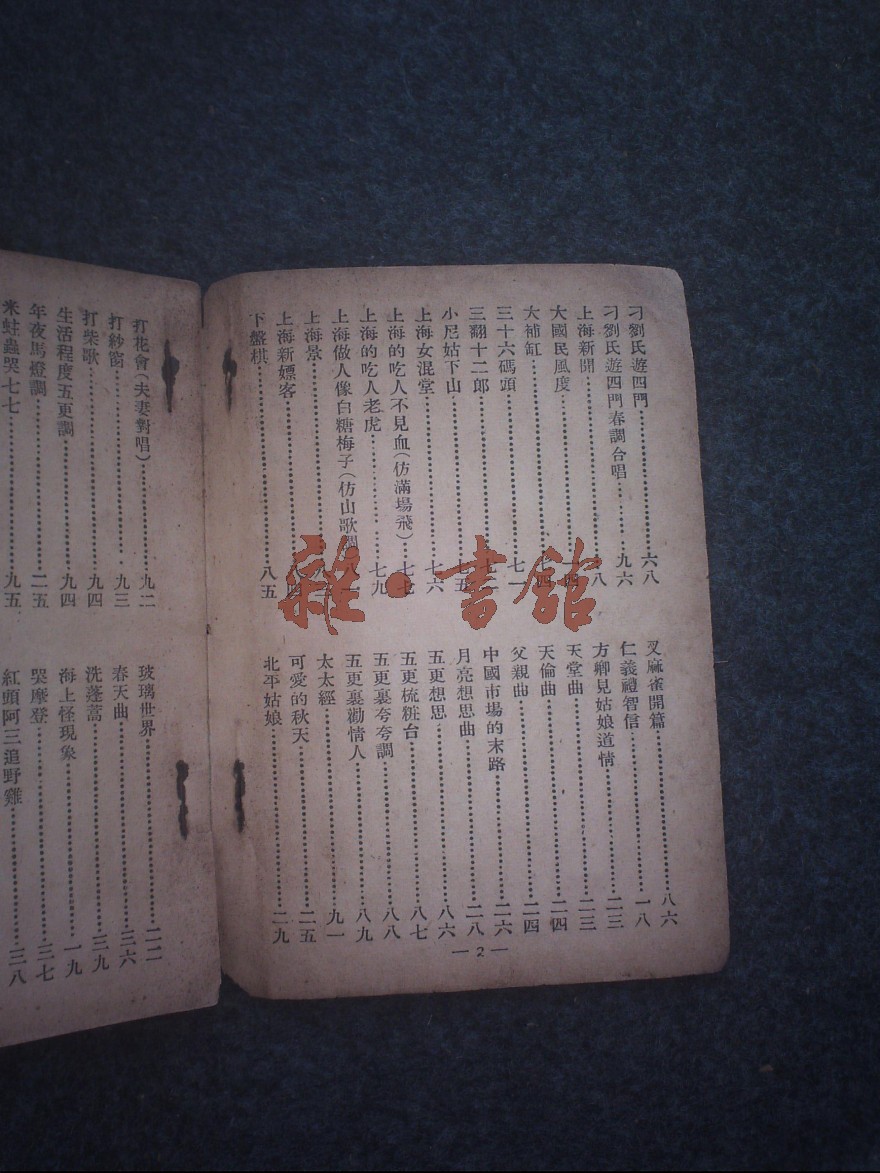 刁劉氏遊四門⋯⋯六八
刁劉氏遊四門春調合唱⋯⋯九六
上海新聞⋯⋯八
大國民風度⋯⋯一四
大補缸⋯⋯四
三十六碼頭⋯⋯七一
三翻十二郎⋯⋯七二
小尼姑下山⋯⋯五
上海女混堂⋯⋯七六
上海的吃人不見血(仿滿場飛)⋯⋯七七
上海的吃人老虎⋯⋯七九
上海做人像白糖梅子(仿山歌調
上海景⋯⋯八
上海新嫖客⋯⋯八四
下盤棋⋯⋯八五
叉麻雀開篇⋯⋯八六
仁義禮智信⋯⋯一八
方卿見姑娘道情⋯⋯二三
天堂曲⋯⋯二三
天倫曲⋯⋯二四
父親曲⋯⋯二四
中國市場的末路⋯⋯二六
月亮想思曲⋯⋯二八
五更想思⋯⋯八六
五更梳粧台⋯⋯八七
五更裏夸夸調⋯⋯八八
五更裏勸情人⋯⋯八九
太太經⋯⋯九一
可愛的秋天⋯⋯二五
北平姑娘⋯⋯二九
—2—
打花會(夫妻對唱)⋯⋯九二
打紗窗⋯⋯九三
打柴歌⋯⋯九四
生活程度五更調⋯⋯九四
年夜馬燈調⋯⋯二五
米蛀蟲哭七七⋯⋯九五
玻璃世界⋯⋯二二
春天曲⋯⋯三六
洗蓬蒿⋯⋯三九
海上怪現象⋯⋯一九
哭摩登⋯⋯三七
紅頭阿三追野雞⋯⋯三八
雜·書館